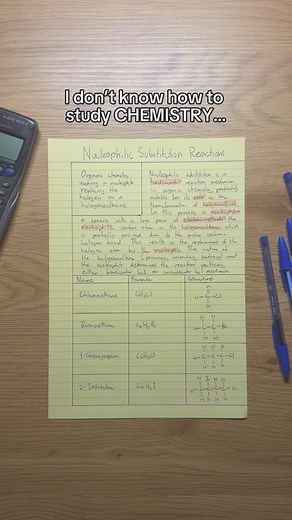 I don't know how to
study CHEMISTRY...
Nucleophilic Substitution Reactions
Organic chemistry
involving a nucleophile
replacing the
halogen on a
halogenoalkane
Nucleophilic substitution is a
fundamental reaction mechanism
in organic chemistry, particularly
notable for its role in the
transformation of
In this process, a nucleophile,
a species with a lone pair of electrons, attacks the
carbon atom in the halogenoalkane which
is partially positive due to the polar carbon -
halogen bond. This results in the replacement of the
halogen atom by the nucleophile. The nature of
the halogenoalkane (primary, secondary, tertiary) and
the nucleophile determines the reaction pathway,
either bimolecular or unimolecular mechanism
Name
Formula
Structure
Chloromethane
CH3Cl
H
H - C - Cl
H
Bromoethane
C2H5Br
H H
H - C - C - Br
H H
1-Chloropropane
C3H7Cl
H H H
H - C - C - C - Cl
H H H
2-Iodobutane
C4H9I
H I H H
H - C - C - C - C - H
H H H H